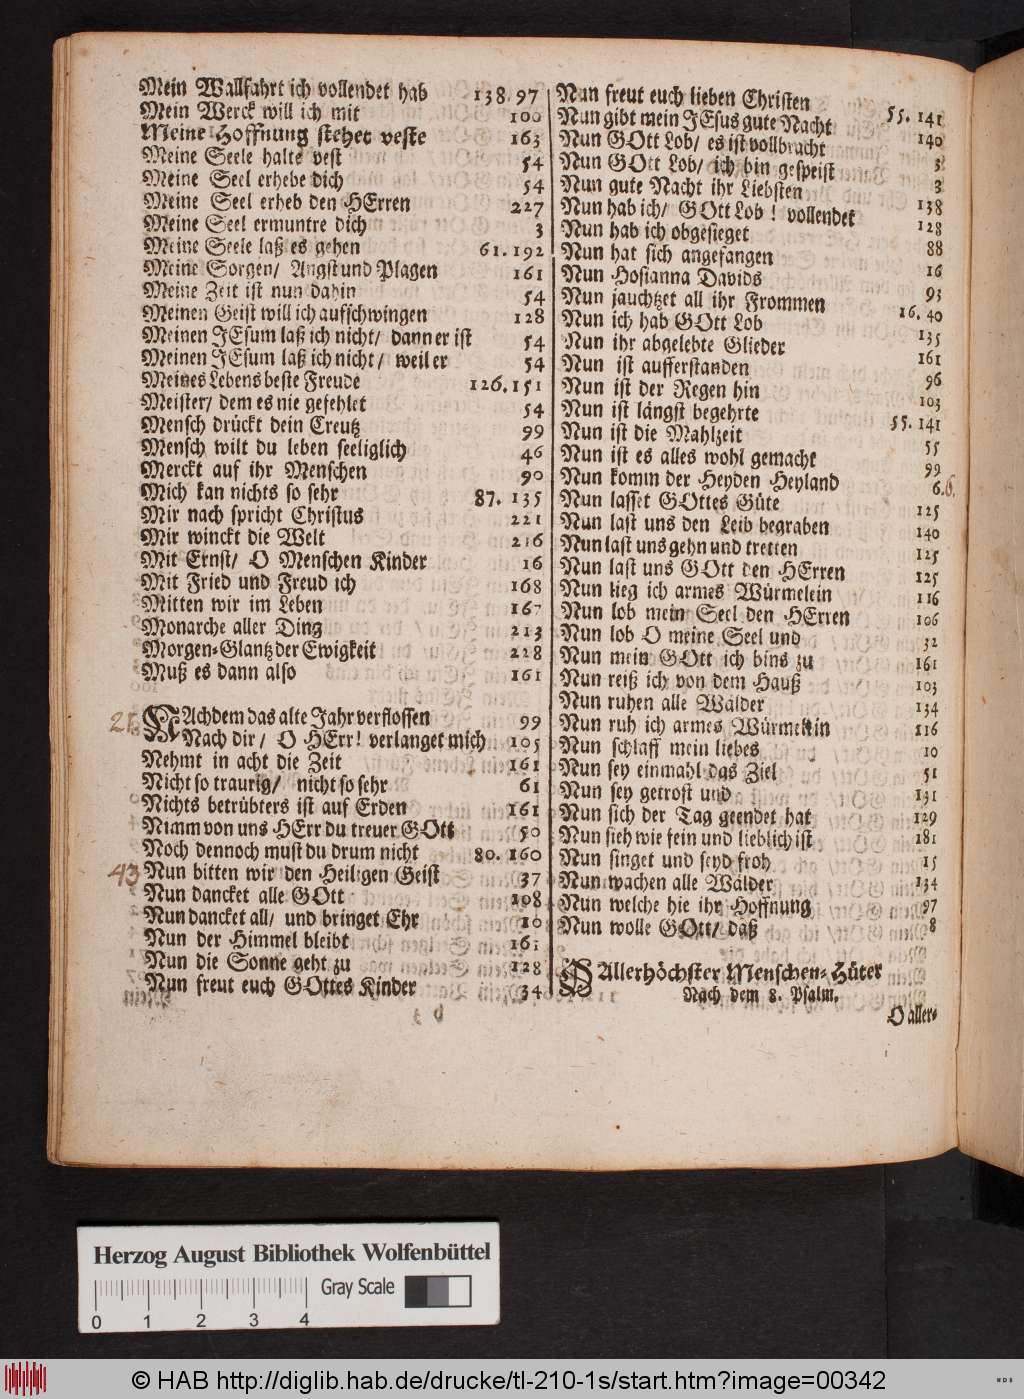 Mein Wallfahrt ich vollendet hab 138.97
Mein Werck will ich mit 100
Meine Hoffnung stehet veste 163
Meine Seele halte vest 54
Meine Seel erhebe dich 54
Meine Seel erheb den HErren 227
Meine Seel ermuntre dich 3
Meine Seele laß es gehen 61.192
Meine Sorgen/ Angst und Plagen 161
Meine Zeit ist nun dahin 54
Meinen Geist will ich aufschwingen 128
Meinen JEsum laß ich nicht/ dann er ist 54
Meinen JEsum laß ich nicht/ weil er 54
Meines Lebens beste Freude 126.151
Meister/ dem es nie gefehlet 54
Mensch drückt dein Creutz 99
Mensch wilt du leben seeliglich 46
Merckt auf ihr Menschen 90
Mich kan nichts so sehr 87. 135
Mir nach spricht Christus 221
Mir winckt die Welt 216
Mit Ernst/ O Menschen Kinder 16
Mit Fried und Freud ich 168
Mitten wir im Leben 167
Monarche aller Ding 213
Morgen-Glantz der Ewigkeit 228
Muß es dann also 161
21. NAchdem das alte Jahr verflossen 99
Nach dir/ O HErr! verlanget mich 105
Nehmt in acht die Zeit 161
Nicht so traurig/ nicht so sehr 61
Nichts betrübters ist auf Erden 161
Nimm von uns HErr du treuer GOtt 50
Noch dennoch must du drum nicht 80. 160
43 Nun bitten wir den Heiligen Geist 37
Nun dancket alle GOtt 108
Nun dancket all/ und bringet Ehr 10
Nun der Himmel bleibt 161
Nun die Sonne geht zu 128
Nun freut euch GOttes Kinder 34
Nun freut euch lieben Christen 55. 141
Nun gibt mein JEsus gute Nacht 140
Nun GOtt Lob/ es ist vollbracht 3
Nun GOtt Lob/ ich bin gespeist 3
Nun gute Nacht ihr Liebsten 138
Nun hab ich/ GOtt Lob! vollendet 128
Nun hab ich obgesieget 88
Nun hat sich angefangen 16
Nun Hosianna Davids 93
Nun jauchtzet all ihr Frommen 16. 40
Nun ich hab GOtt Lob 135
Nun ihr abgelebte Glieder 161
Nun ist aufferstanden 96
Nun ist der Regen hin 103
Nun ist längst begehrte 55. 141
Nun ist die Mahlzeit 55
Nun ist es alles wohl gemacht 99
Nun komm der Heyden Heyland 6.6.
Nun lasset GOttes Güte 125
Nun last uns den Leib begraben 140
Nun last uns gehn und tretten 125
Nun last uns GOtt den HErren 125
Nun lieg ich armes Würmelein 116
Nun lob mein Seel den HErren 106
Nun lob O meine Seel und 32
Nun mein GOtt ich bins zu 161
Nun reiß ich von dem Hauß 103
Nun ruhen alle Wälder 134
Nun ruh ich armes Würmelein 116
Nun schlaff mein liebes 10
Nun sey einmahl das Ziel 51
Nun sey getrost und 131
Nun sich der Tag geendet hat 129
Nun sieh wie fein und lieblich ist 181
Nun singet und seyd froh 15
Nun wachen alle Wälder 134
Nun welche hie ihr Hoffnung 97
Nun wolle GOtt/ daß 8
O Allerhöchster Menschen-Hüter
Nach dem 8. Psalm.
O aller-
Herzog August Bibliothek Wolfenbüttel
Gray Scale
0 1 2 3 4
© HAB http://diglib.hab.de/drucke/tl-210-1s/start.htm?image=00342